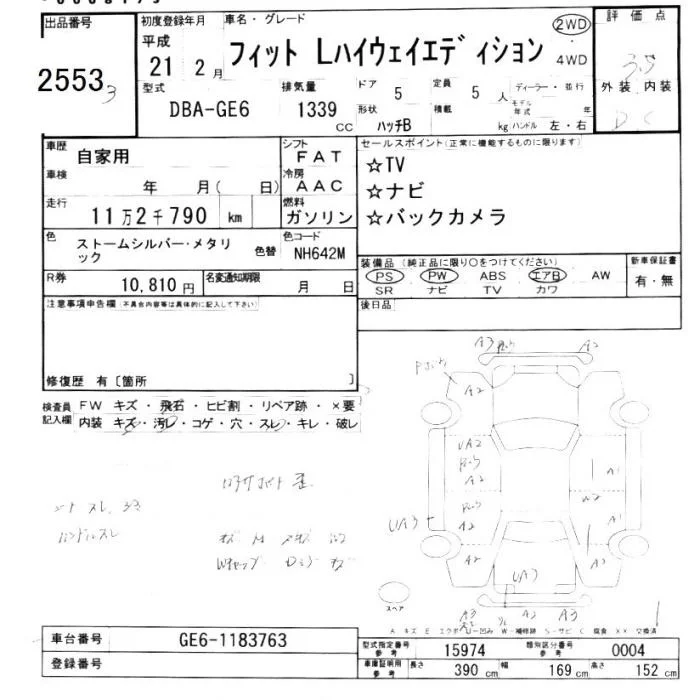 出品番号
2553
3
初度登録年月
平成
21 2 月
車名・グレード
フィット Lハイウェイエディション
2WD
4WD
評価点
3.5
外装 内装
D C
型式
DBA-GE6
排気量
1339
CC
ドア 5
形状 ハッチB
定員 5 人
積載 kg
ディーラー・並行
モデル年式 年
ハンドル 左・右
車歴 自家用
シフト FAT
車検 年 月( 日)
冷房 AAC
走行 11万2千790 km
燃料 ガソリン
色 ストームシルバー・メタリック
色替
色コード NH642M
R券 10,810円
名変通知期限 月 日
セールスポイント(正常に機能するものに限ります)
☆TV
☆ナビ
☆バックカメラ
装備品 (純正品に限り○をつけてください)
PS PW ABS エアB AW
SR ナビ TV カワ
新車保証書
有・無
後日品
注意事項申告欄(不具合内容等は具体的に記入して下さい)
修復歴 有〔箇所 〕
検査員記入欄
FW キズ・飛石・ヒビ割・リペア跡・×要
内装 キズ・汚レ・コゲ・穴・スレ・キレ・破レ
シート スレ
ハンドルスレ
A3
A2
A2
A2
UA2
A2
A1
W2
UA3
A2
A2
A1
A2
UA3
A3
A2
A3
スペア
A キズ E エクボ U 凹み W 補修跡 S サビ C 腐食 XX 交換済
車台番号 GE6-1183763
登録番号
型式指定番号 参考 15974
類別区分番号 参考 0004
車庫証明用 参考 長さ 390 cm 幅 169 cm 高さ 152 cm